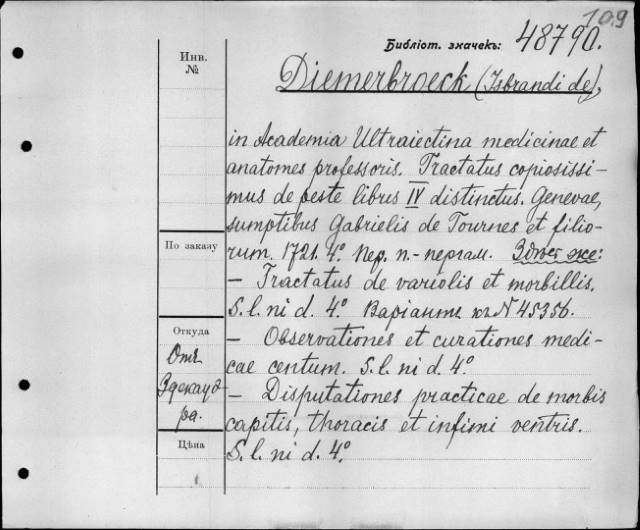 109
Библіот. значекъ: 48790.
Инв.
№
Diemerbroeck (Isbrandi de),
in Academia Ultraiectina medicinae et
anatomes professoris. Tractatus copiosissi-
mus de peste libris IV distinctus. Genevae,
sumptibus Gabrielis de Tournes et filio-
rum. 1721. 4º. Пер. п.-пергам. Здѣсь же:
По заказу
— Tractatus de variolis et morbillis.
S. l. ni d. 4º. Варіантъ къ № 45356.
Откуда
Отъ
Здекауэ-
ра.
— Observationes et curationes medi-
cae centum. S. l. ni d. 4º
— Disputationes practicae de morbis
capitis, thoracis et infimi ventris.
Цѣна
S. l. ni d. 4º